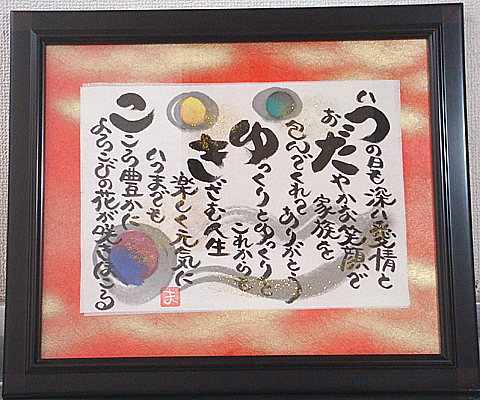 いつの日も深い愛情と
おだやかな笑顔で
家族を
包んでくれてありがとう
ゆっくりとゆっくりと
これからも
きざむ人生
楽しく元気に
いつまでも
こころ豊かに
よろこびの花が咲きほこる
ま